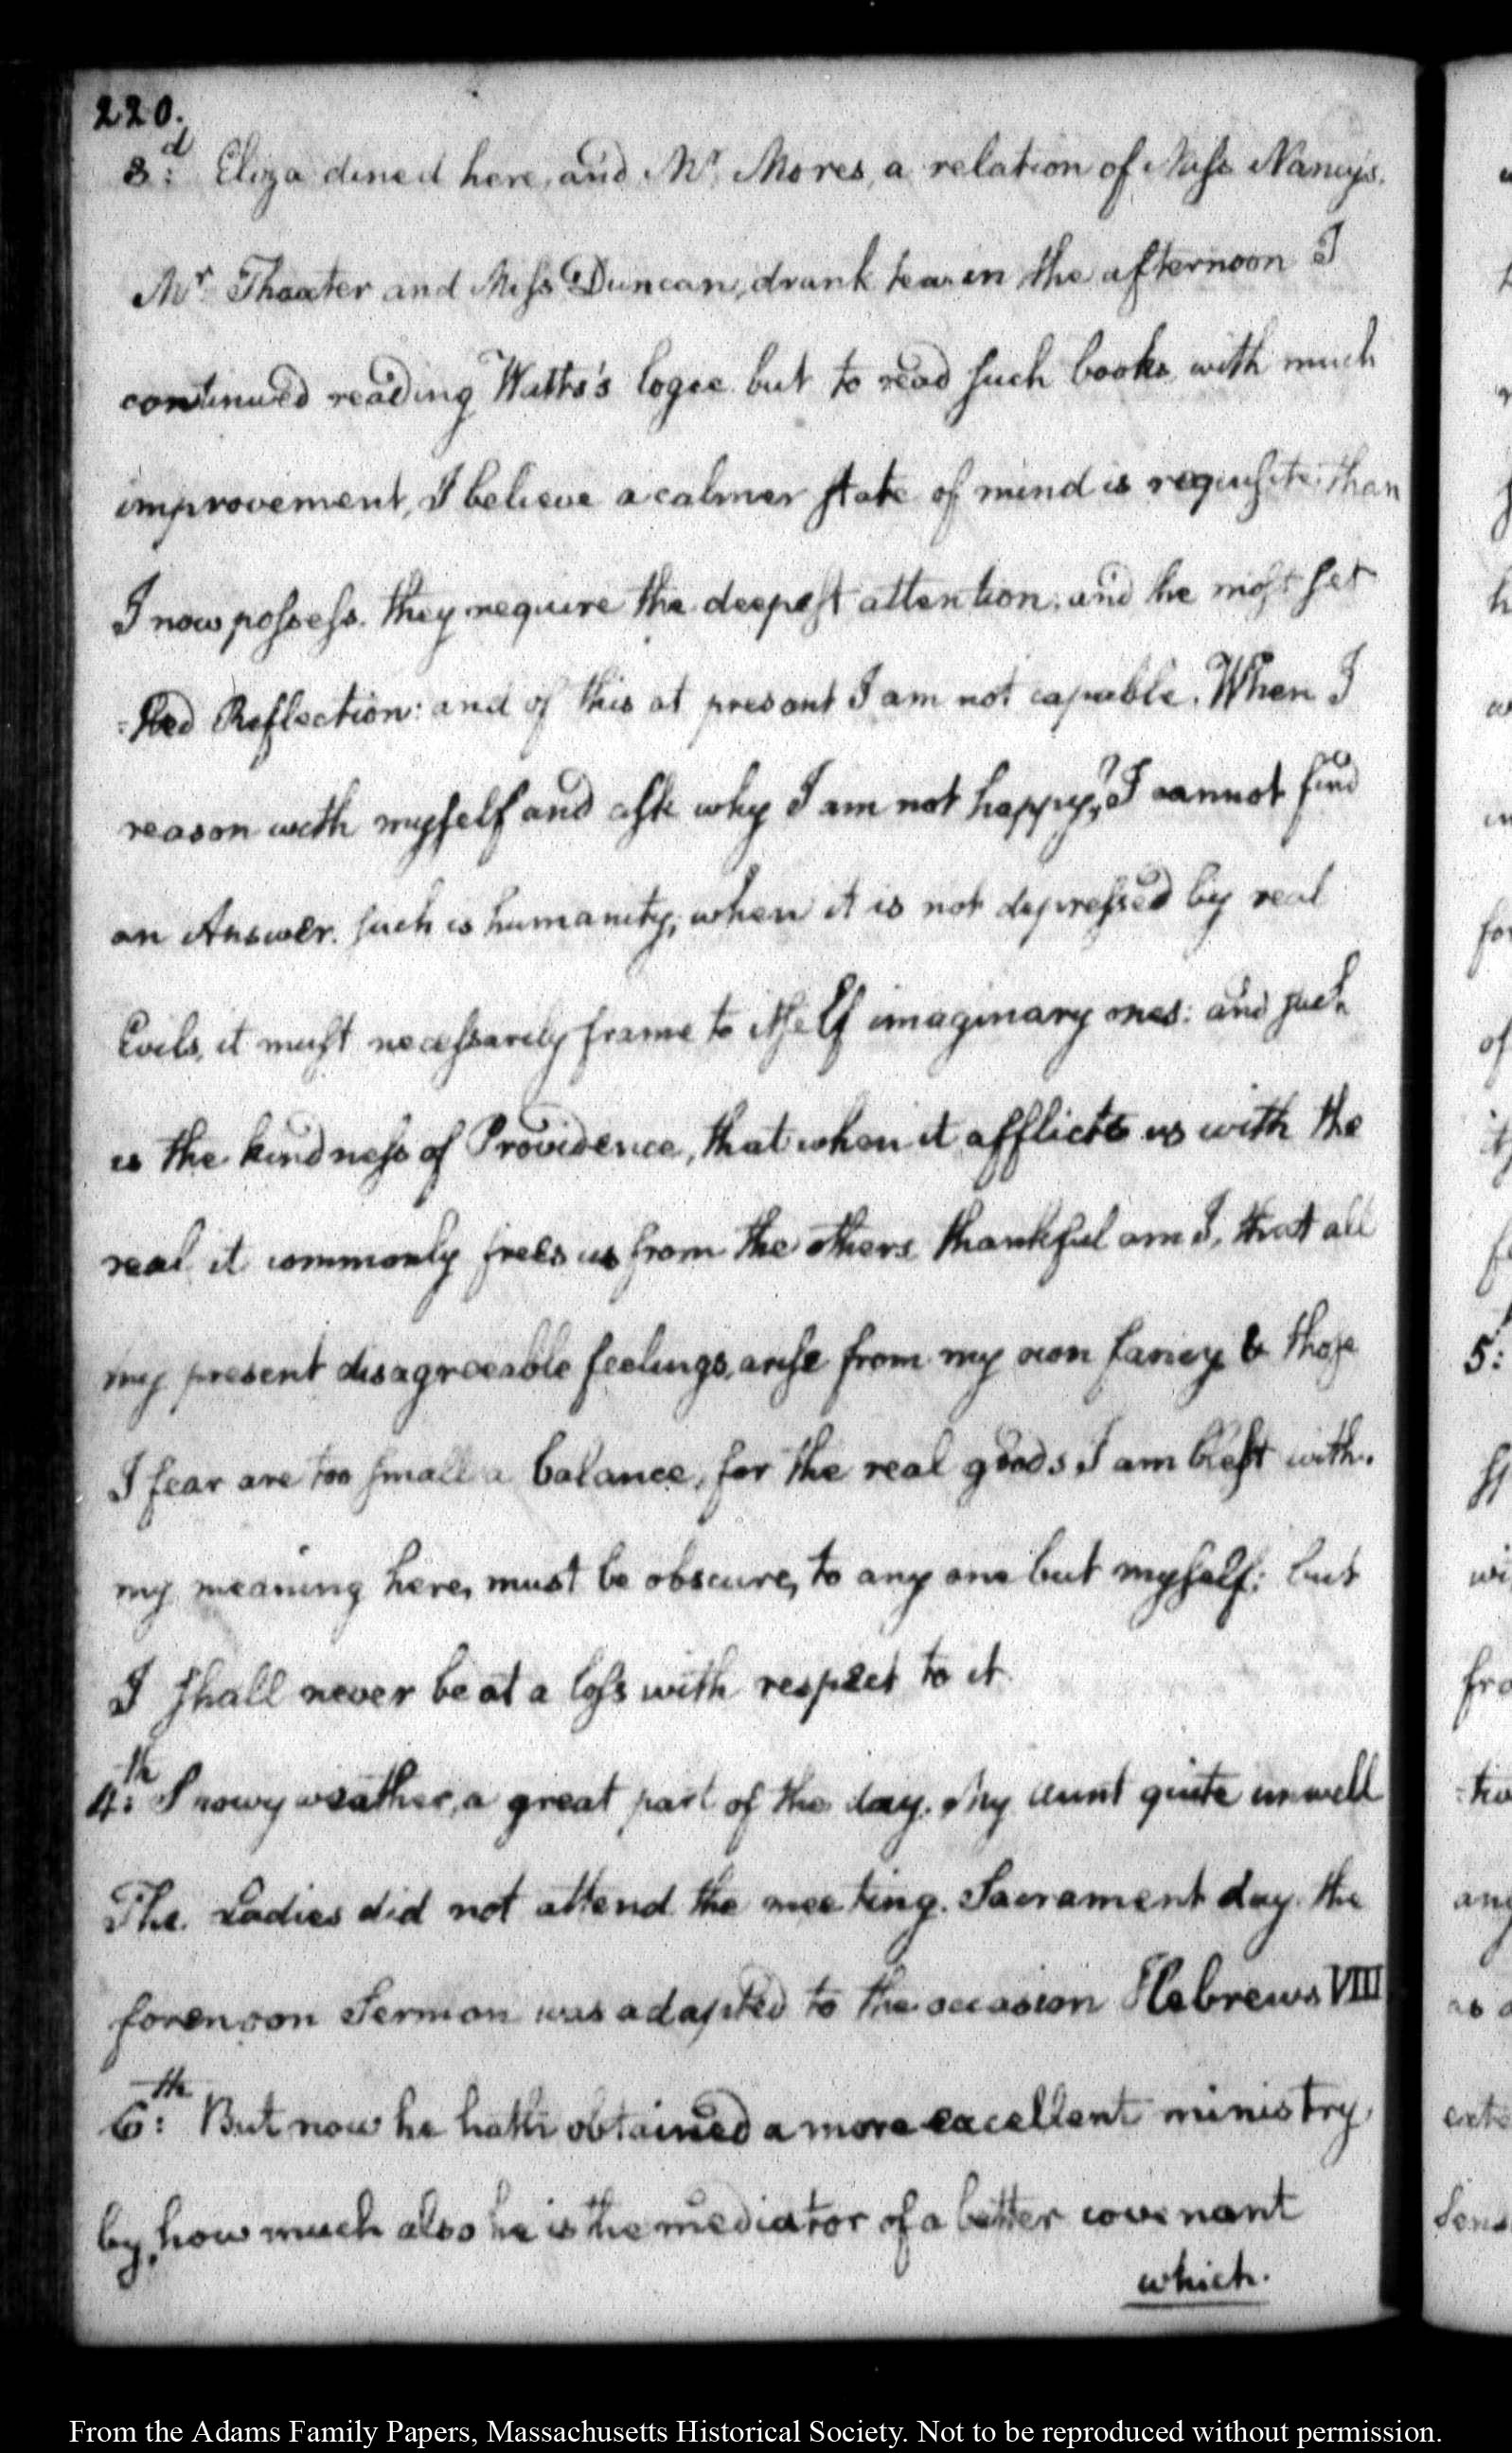 220.
3:d Eliza dined here, and Mr. Mores, a relation of Miss Nancy's.
Mr. Thaxter and Miss Duncan, drank tea in the afternoon I
continued reading Watts's logic but to read such books, with much
improvement, I believe a calmer state of mind is requisite than
I now possess. they require the deepest attention, and the most set
-tled Reflection: and of this at present I am not capable. When I
reason with myself and ask why I am not happy,? I cannot find
an Answer. such is humanity; when it is not depressed by real
Evils, it must necessarily frame to itself imaginary ones: and such
is the kindness of Providence, that when it afflicts us with the
real it commonly frees us from the others thankful am I, that all
my present disagreeable feelings, arise from my own fancy & those
I fear are too small a balance, for the real goods I am blest with.
my meaning here, must be obscure, to any one but myself: but
I shall never be at a loss with respect to it
4:th Snowy weather, a great part of the day. My aunt quite unwell
The Ladies did not attend the meeting. Sacrament day the
forenoon Sermon was adapted to the occasion Hebrews VIII
6:th But now he hath obtained a more excellent ministry,
by how much also he is the mediator of a better covenant
which.
5:
From the Adams Family Papers, Massachusetts Historical Society. Not to be reproduced without permission.